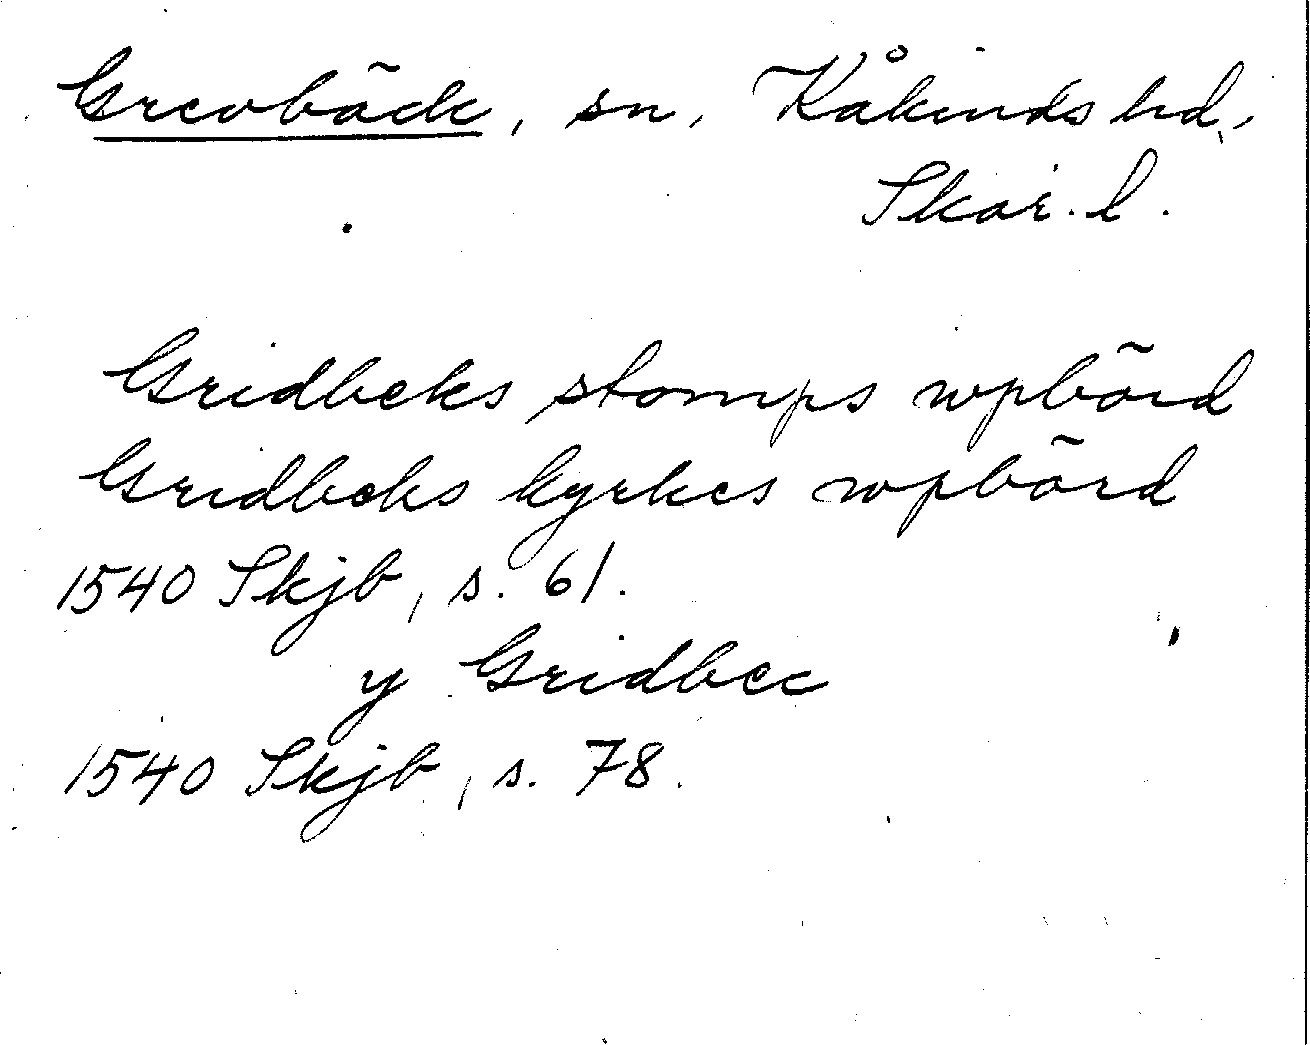 Grevbäck, sn, Kåkinds hd,
Skar. l.
Gridbeks stomps wpbörd
Gridbeks kyrkes wpbörd
1540 Skjb, s. 61.
y Gridbec
1540 Skjb, s. 78.